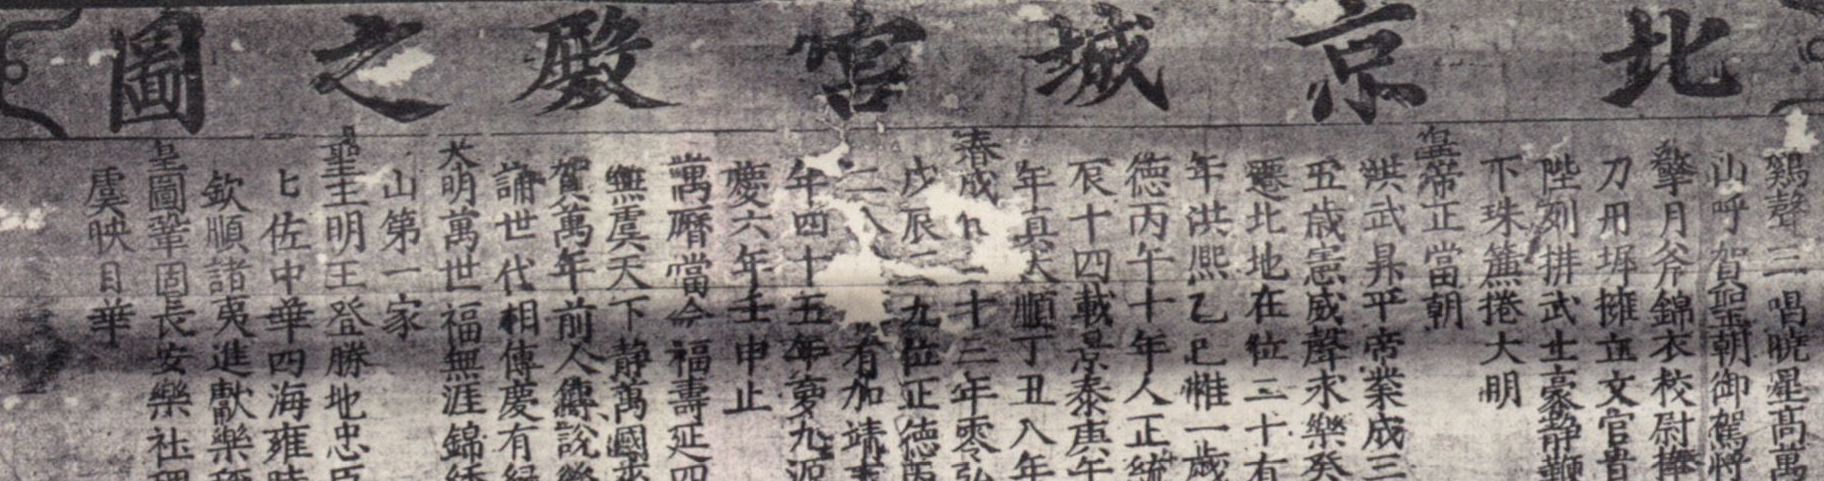 北京城宮殿之圖
鷄聲三唱曉星高萬
山呼賀聖朝御駕將
擎月斧錦衣校尉擁
刀用墀擁立文官晋
陛列排武士豪靜鞭
下珠簾捲大明
皇帝正當朝
洪武昇平帝業成三
五歲憲威聲永樂癸
遷北地在位二十有
年洪熈乙巳惟一歲
德丙午十年人正統
辰十四載景泰庚午
年真天順丁丑八年
春成二十三年零弘
戊辰一九位正德丙
二八有加靖
年四十五年夢九源
慶六年壬申止
萬曆當今福壽延四
無虞天下靜萬國來
賀萬年前人傳說後
誦世代相傳慶有緣
大明萬世福無涯錦綉
山第一家
聖主明王登勝地忠臣
匕佐中華四海雍時
欽順諸夷進獻樂
皇圖鞏固長安樂社稷
虞映目華